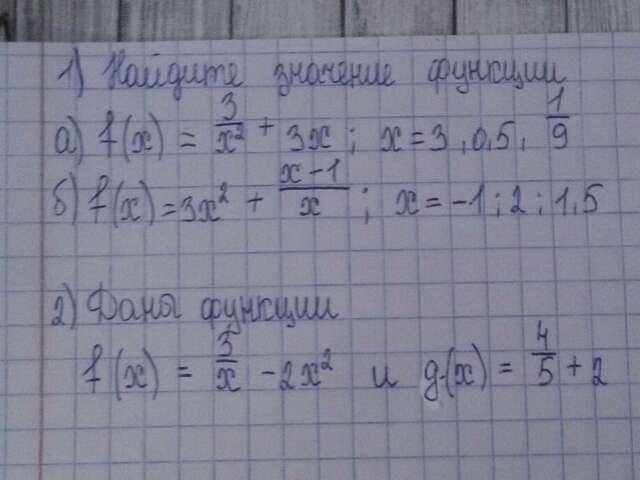 1) Найдите значение функции
а) f(x) = 3/x² + 3x; x = 3, 0,5, 1/9
б) f(x) = 3x² + (x-1)/x; x = -1; 2; 1,5
2) Даны функции
f(x) = 3/x - 2x² и g(x) = 4/5 + 2